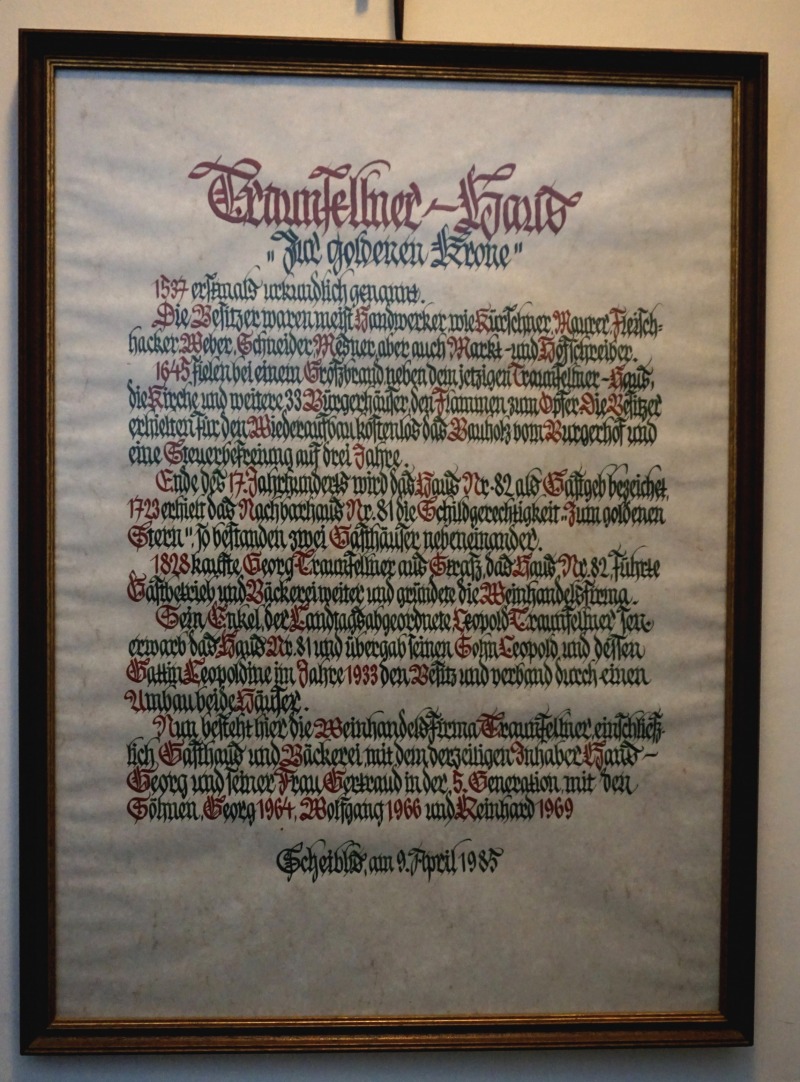 Traunfellner-Haus
"Zur goldenen Krone"
1537 erstmals urkundlich genannt.
Die Besitzer waren meist Handwerker wie Kürschner, Maurer, Fleisch-
hacker, Weber, Schneider, Mesner, aber auch Markt- und Hofschreiber.
1645 fielen bei einem Großbrand neben dem jetzigen Traunfellner-Haus,
die Kirche und weitere 33 Bürgerhäuser, den Flammen zum Opfer. Die Besitzer
erhielten für den Wiederaufbau kostenlos das Bauholz vom Burgerhof und
eine Steuerbefreiung auf drei Jahre.
Ende des 17. Jahrhunderts wird das Haus Nr. 82 als Gastgeb bezeichet,
1723 erhielt das Nachbarhaus Nr. 81 die Schildgerechtigkeit "Zum goldenen
Stern", so bestanden zwei Gasthäuser nebeneinander.
1828 kaufte Georg Traunfellner aus Straß, das Haus Nr. 82, führte
Gastbetrieb und Bäckerei weiter und gründete die Weinhandelsfirma.
Sein Enkel, der Landtagsabgeordnete Leopold Traunfellner sen.
erwarb das Haus Nr. 81 und übergab seinen Sohn Leopold und dessen
Gattin Leopoldine im Jahre 1933 den Besitz und verband durch einen
Umbau beide Häuser.
Nun besteht hier die Weinhandelsfirma Traunfellner, einschließ-
lich Gasthaus und Bäckerei mit dem derzeitigen Inhaber Hans-
Georg und seiner Frau Gertraud in der 5. Generation mit den
Söhnen, Georg 1964, Wolfgang 1966 und Reinhard 1969
Scheibbs, am 9. April 1985